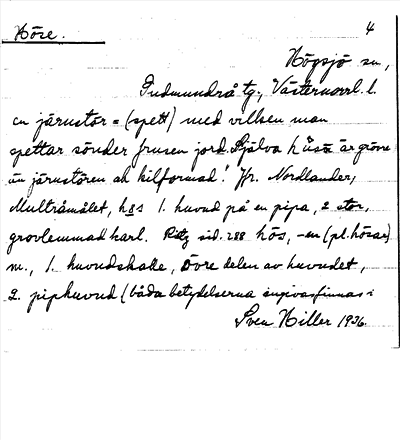 Höse. 4
Högsjö sn,
Gudmundrå tg., Västernorrl. l.
en järnstör = (spett) med vilken man
spettar sönder frusen jord. Själva håsa är grövre
än järnstören och kilformad! Jfr. Nordlander,
Multråmålet, hås 1. huvud på en pipa, 2 stor,
grovlemmad karl. Rietz sid. 288 hös, -en (pl. hösar)
m., 1. huvudskalle, övre delen av huvudet,
2. piphuvud (båda betydelserna angivas finnas i
Sven Hiller 1936.